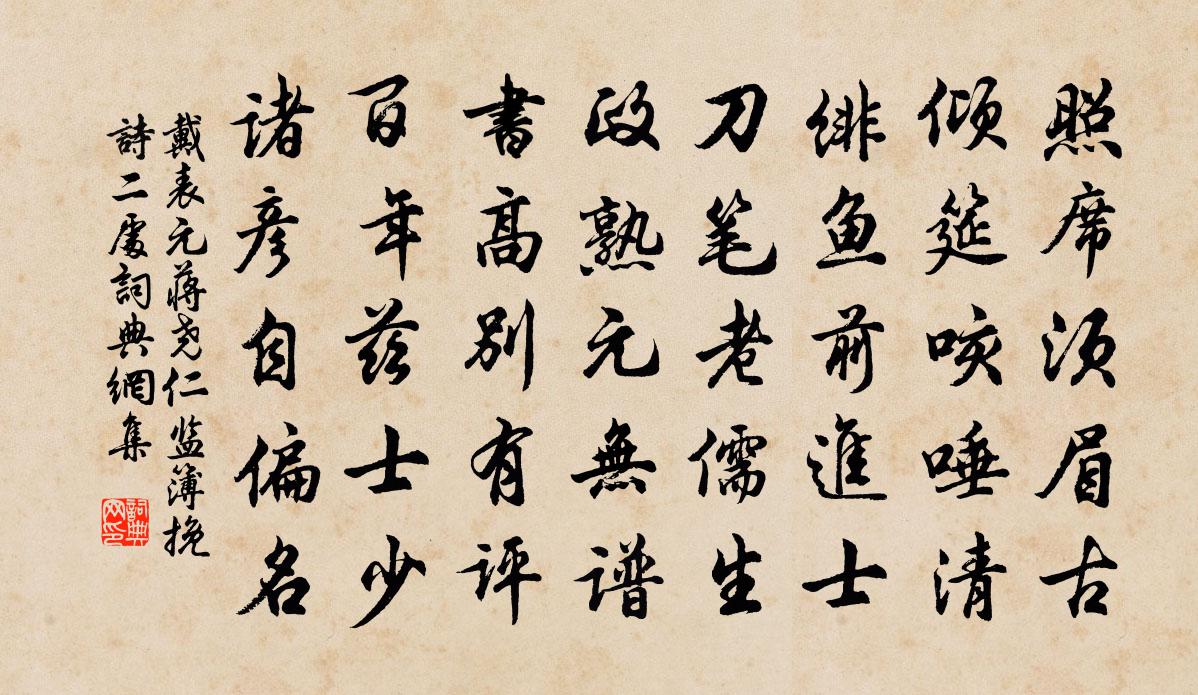 照席须眉古
倾筵咳唾清
绯鱼前進士
刀笔老儒生
政熟元無谱
書高别有评
百年兹士少
诸彦自偏名
戴表元蒋尧仁监簿挽
詩二處詞典網集
詞典
网印